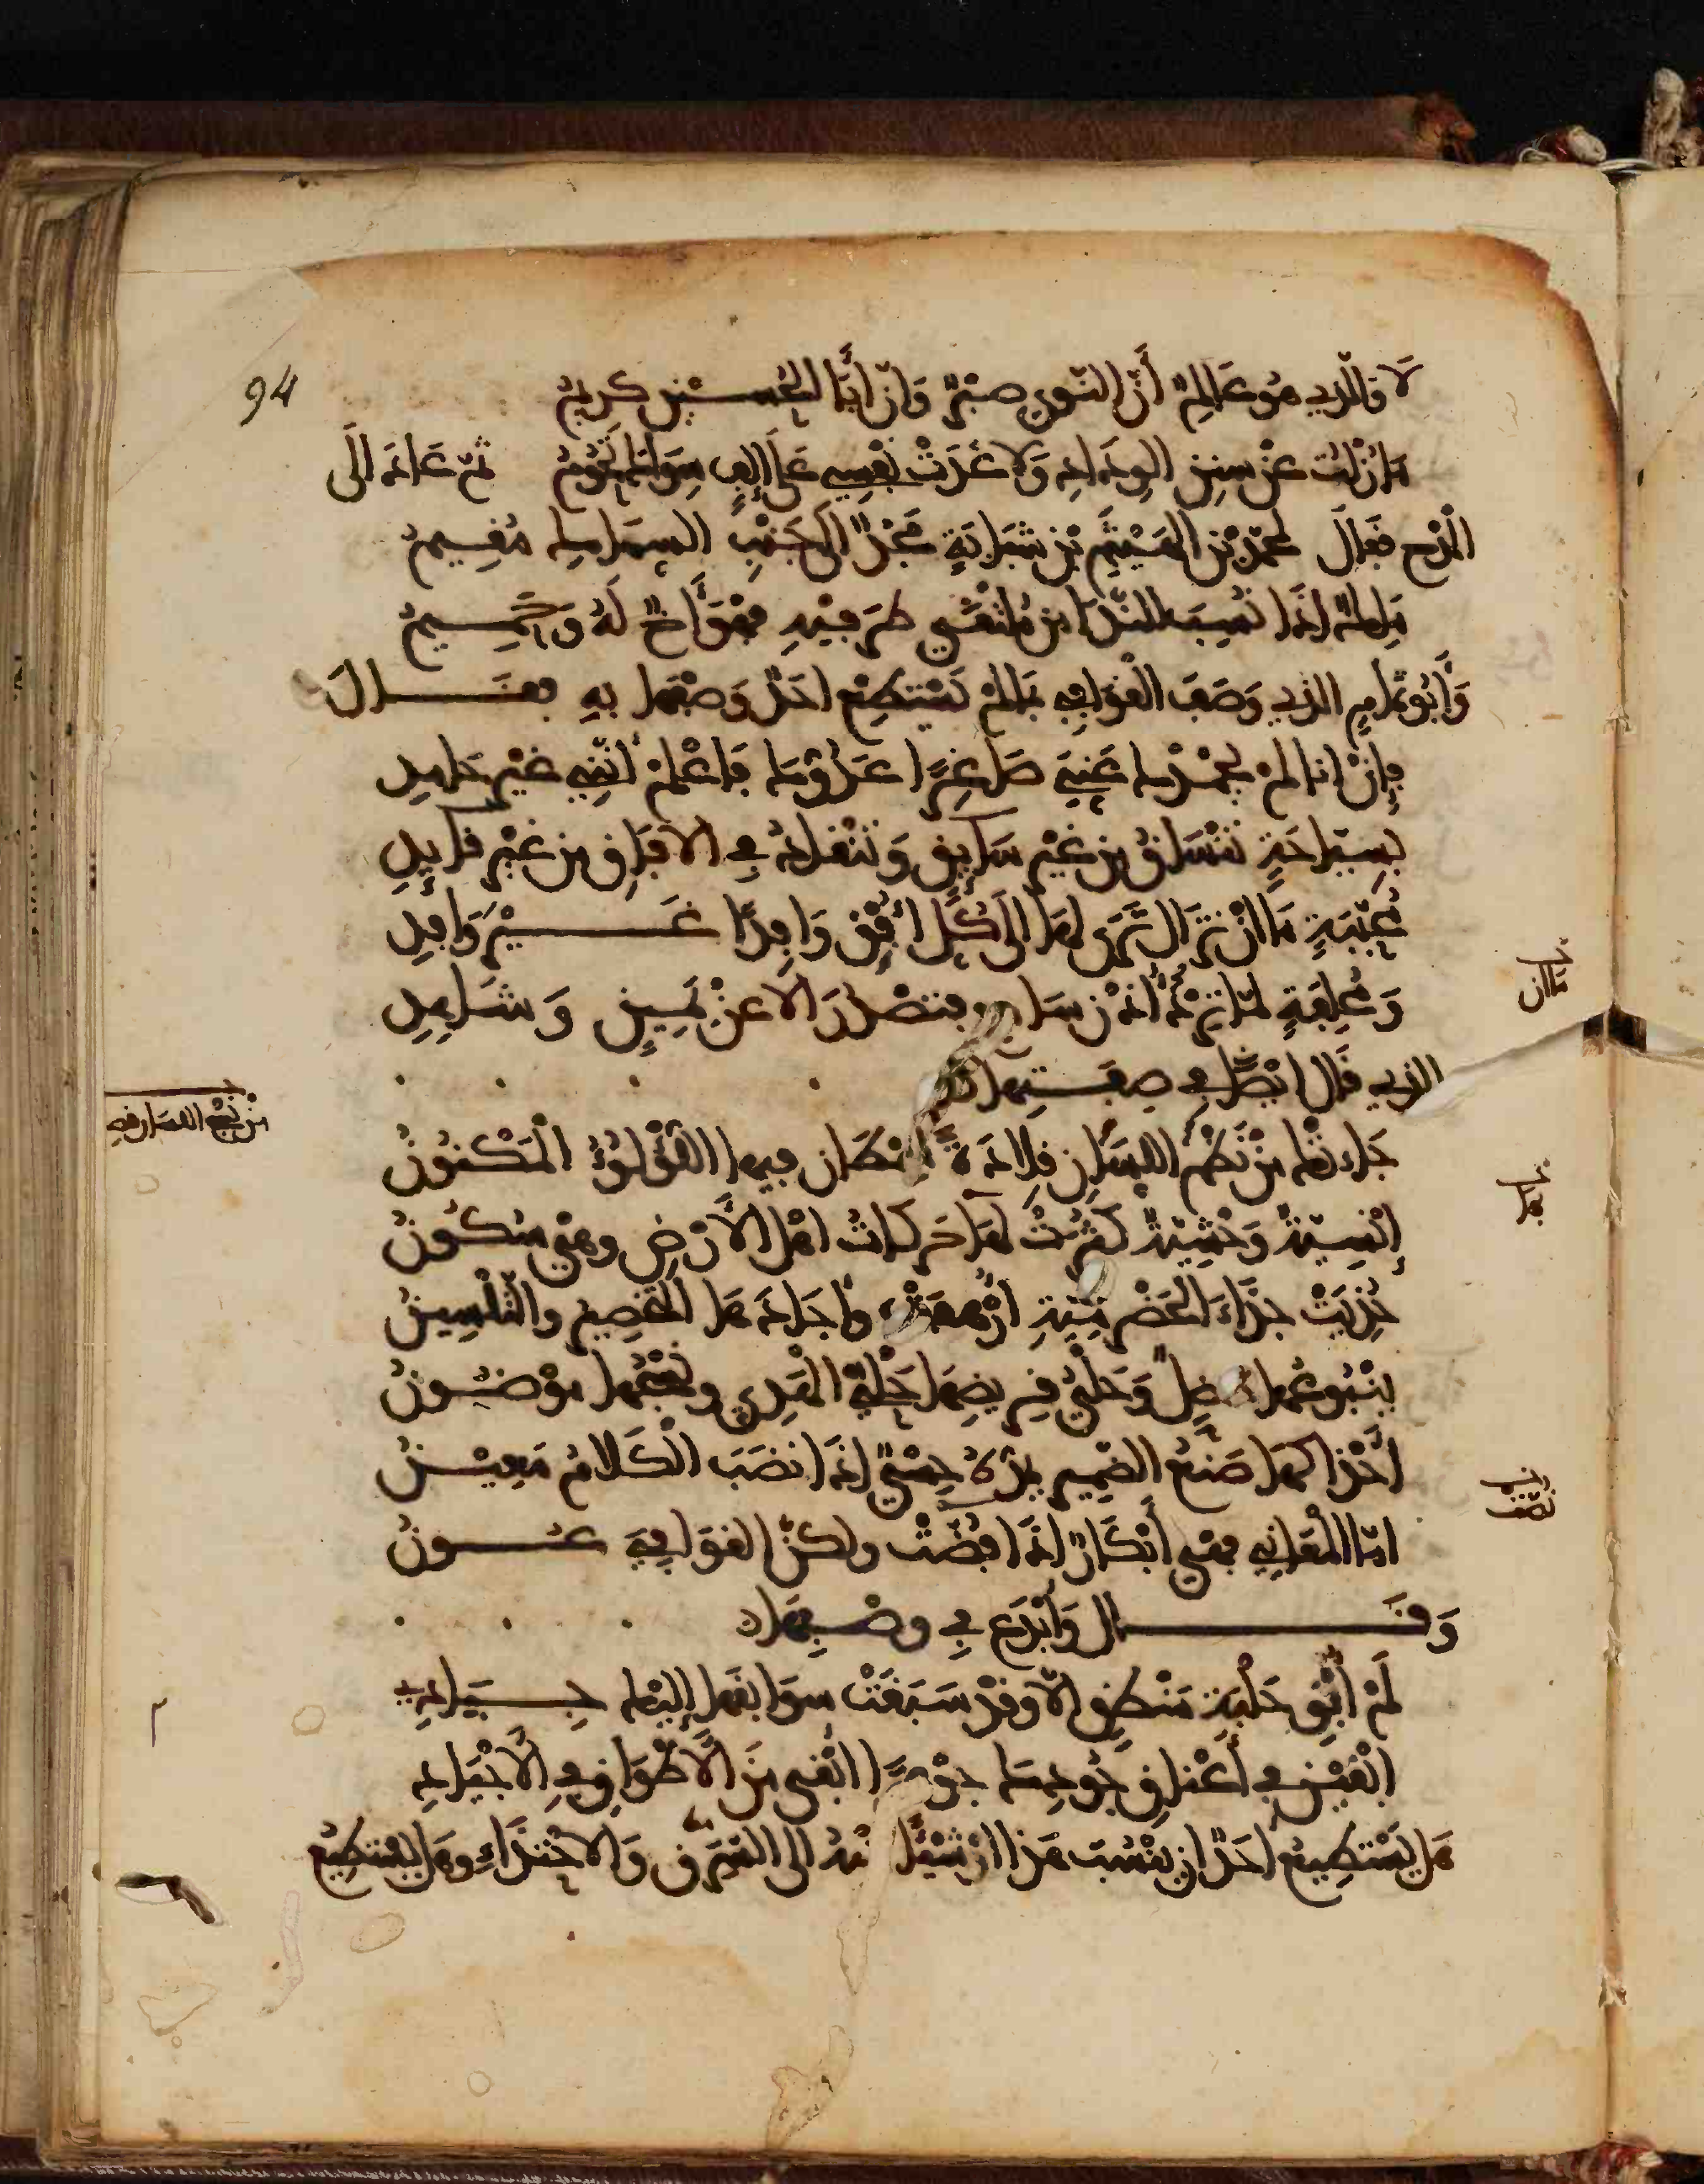 94
لَا وَالّذِي هُوَ عَالِمٌ أَنَّ النَّوى صَبْرٌ وَأنَّ أبَا الحُسَيْنِ كَرِيمُ
مَا زُلْتُ عَنْ سَنَنِ الوِدَادِ وَلَا غَدَتْ نَفْسِي عَلى إِلْفٍ سِوَاكَ تَحُومُ ثمّ عَادَ الَى
الْمَدْحِ فَقَالَ لمحمّد بْنِ الهَيْثَمِ بْنِ شَبَابَةٍ مَجْدٌ الَى جَنْبِ السِّمَاكِ مُقِيمُ
مَلِكٌ اِذَا نُسِبَ النّدَا مِن مُلْتَقَى طَرَفَيْهِ فهْوَ أَخٌ لَهُ وَحَمِيمُ
وَأَبُو تَمّامٍ الذِي وَصَفَ الْقَوَافِي بمَا لَمْ يَسْتَطِعْ احَدٌ وَصْفَهَا بِهِ فقَالَ
فإِنْ انا لمْ يحْمَدْكَ عَنِّيَ صَاغِرًا عَدُوُّكَ فَاعْلَمْ أَنَّنِي غَيْرُ حَامِدِ
بِسيّاحَةٍ تَنْسَاقُ مِن غَيْرِ سَائِقٍ وَتَنْقَادُ فِي الآفَاقِ مِن غَيْرِ قَائِدِ
مُحَبَّبَةٍ مَا انْ تَزَالُ تَرَى لهَا الَى كُلّ أُفْقٍ وَافِدًا غَيْرَ وَافِدِ
وَمُحْلِفَةٍ لمّا تَرِدْ أُذْنَ سَامِعٍ فتصْدُرَ الا عَنْ يَمِينٍ وَشَاهِدِ
الذي قَال ايْضًا فِي صِفَتِهَا
جَاءتْكَ مِنْ نَظْمِ اللِّسَانِ قِلَادَةٌ سِمْطَانِ فيها اللُّؤْلُؤُ الْمَكْنُونُ
إِنْسِيّةٌ وَحْشِيّةٌ كَثُرَتْ بهَا حَرَكَاتُ اهْلِ الأَرْضِ وهْيَ سُكُونُ
حُذِيَتْ حِذَاءَ الحَضْرَمِيّةِ أُرْهِفَتْ وأجَادَهَا التَّخْصِيرُ والتَّلْسِينُ
يَنْبُوعُهَا خَضِلٌ وَحَلْيُ قَرِيضِهَا حَلْيُ الْهَدِيِّ ونَسْجُهَا مَوْضُونُ
أَحْذَاكَهَا صَنَعُ الضَّمِيرِ يَمُدُّهُ حِسْيٌ إِذَا نَضَبَ الْكَلَامُ مَعِينُ
امّا الْمَعَانِي فهْيَ أَبْكَارٌ اذَا افتُضّتْ ولكنّ القوَافِيَ عُونُ
وَقَالَ وَأَبْدَعَ فِي وصْفِهَا
لَمْ أُبْقِ حَلْبَةَ مَنْطِقٍ إِلّا وقَدْ سَبَقَتْ سوَابِقُهَا إِلَيْكَ جِيَادِي
ابْقَيْنَ فِي أَعْنَاقِ جُودِكَ جوْهَرًا ابْقَى مِنَ الْأَطْوَاقِ فِي الْأَجْيَادِ
هَلْ يَسْتَطِيعُ احَدٌ ان يَنْسُبَ هَذا اوْ شَيْئًا مِنْهُ الى السَّرَقِ وَالاحْتِذَاءِ وهَلْ يسْتطِيعُ
مَا ان
مِنْ نَجْعِ اللسان فيه